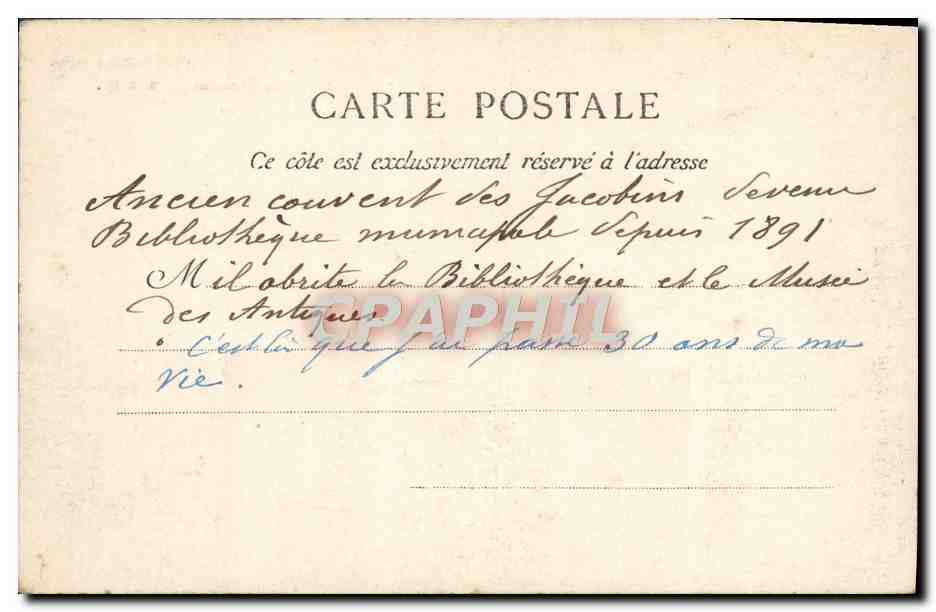 CARTE POSTALE
Ce côté est exclusivement réservé à l'adresse
Ancien couvent des Jacobins devenu
Bibliothèque municipale depuis 1891
M il abrite la Bibliothèque et le Musée
des Antiques.
CPAPHIL
c'est là que j'ai passé 30 ans de ma
vie.